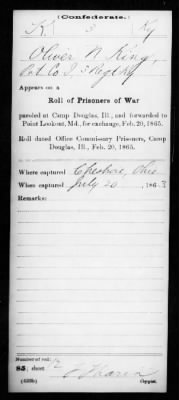 (Confederate.)
K 3 Ky
Oliver N. King,
Pvt Co. I, 3 Reg Ky
Appears on a
Roll of Prisoners of War
paroled at Camp Douglas, Ill., and forwarded to
Point Lookout, Md., for exchange, Feb. 20, 1865.
Roll dated Office Commissary Prisoners, Camp
Douglas, Ill., Feb. 20, 1865.
Where captured Cheshire, Ohio
When captured July 20, 1863
Remarks:
Number of roll:
85; sheet 12
(639b) Copyist.